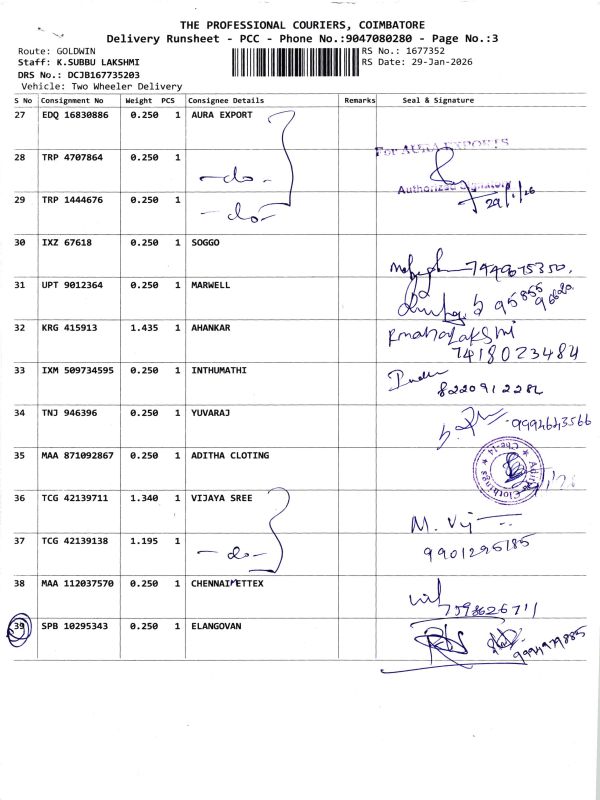 THE PROFESSIONAL COURIERS, COIMBATORE
Delivery Runsheet - PCC - Phone No.:9047080280 - Page No.:3
Route: GOLDWIN
RS No.: 1677352
Staff: K.SUBBU LAKSHMI
RS Date: 29-Jan-2026
DRS No.: DCJB167735203
Vehicle: Two Wheeler Delivery
S No Consignment No Weight PCS Consignee Details Remarks Seal & Signature
27 EDQ 16830886 0.250 1 AURA EXPORT
For AURA EXPORTS
28 TRP 4707864 0.250 1
-do-
Authorized Signatory
29/1/26
29 TRP 1444676 0.250 1
-do-
30 IXZ 67618 0.250 1 SOGGO
7449675350.
31 UPT 9012364 0.250 1 MARWELL
95855
32 KRG 415913 1.435 1 AHANKAR
7418023484
33 IXM 509734595 0.250 1 INTHUMATHI
8220912284
34 TNJ 946396 0.250 1 YUVARAJ
9994643566
35 MAA 871092867 0.250 1 ADITHA CLOTING
36 TCG 42139711 1.340 1 VIJAYA SREE
M. Vij
37 TCG 42139138 1.195 1
-do-
9901295185
38 MAA 112037570 0.250 1 CHENNAIMETTEX
7598626711
39 SPB 10295343 0.250 1 ELANGOVAN